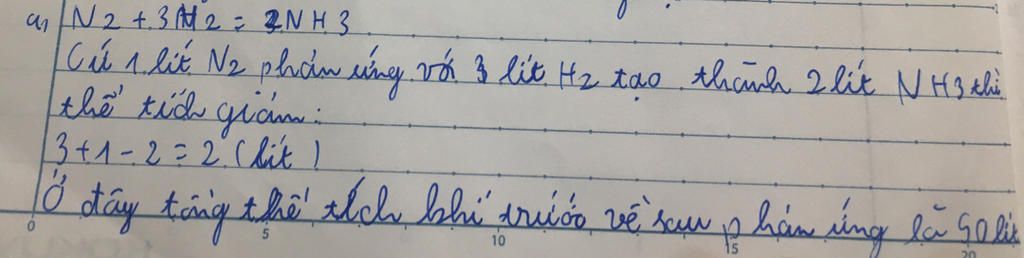 a, N2 + 3H2 = 2NH3
Cứ 1 lít N2 phản ứng với 3 lít H2 tạo thành 2 lít NH3 thì
thể tích giảm:
3+1-2 = 2 (lít)
Ở đây tổng thể tích khí trước về sau phản ứng là lít
0 5 10 15 20